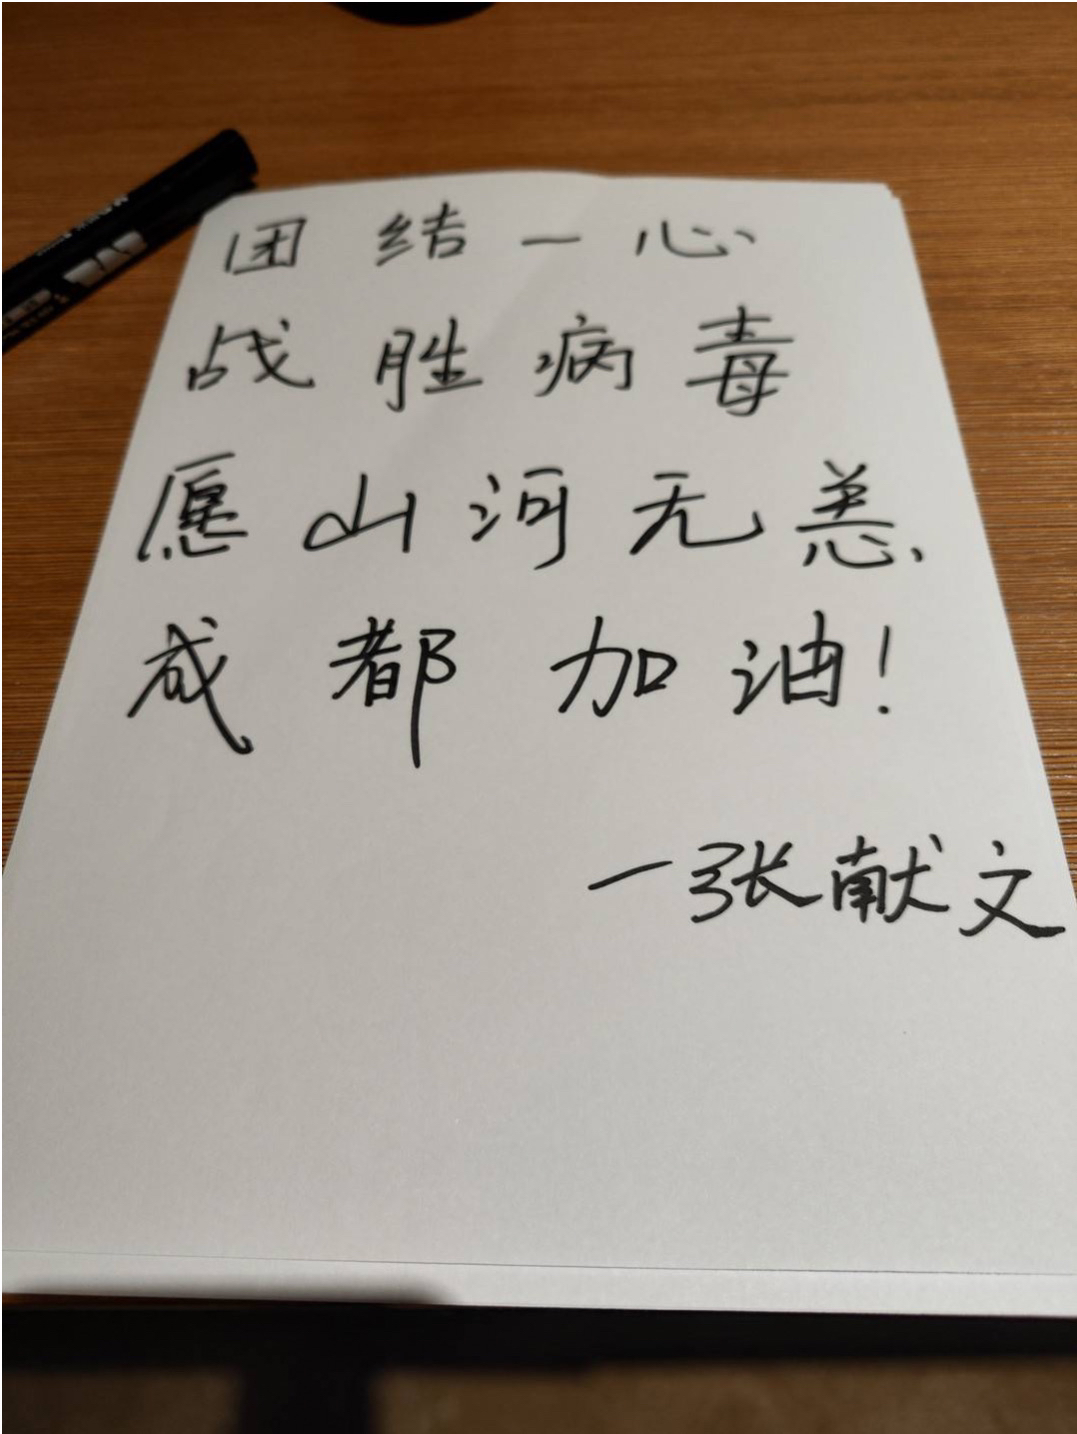 团结一心
战胜病毒
愿山河无恙
成都加油!
一张献文